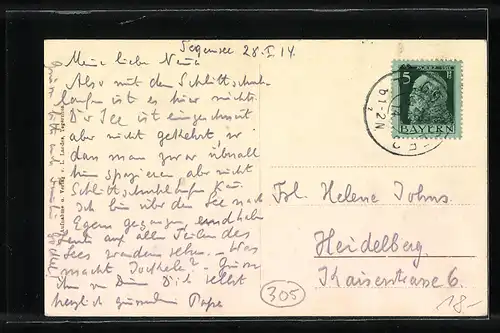 Tegernsee 28.I.14
Meine liebe
Also mit dem Schlittschuh-
laufen ist es hier nichts.
Der See ist eingeschneit
aber nicht gekehrt, so
dass man zwar überall
hin spazieren, aber nicht
Schlittschuhlaufen kann.
Ich bin über den See nach
Egern gegangen und habe
heute auf allen Teilen des
Sees wandern sehen. – Was
macht –
Dich selbst
herzlich grüssend Papa
5
BAYERN
1-2N
Frl. Helene Johns.
Heidelberg.
Kaiserstrasse 6.
305
18.-